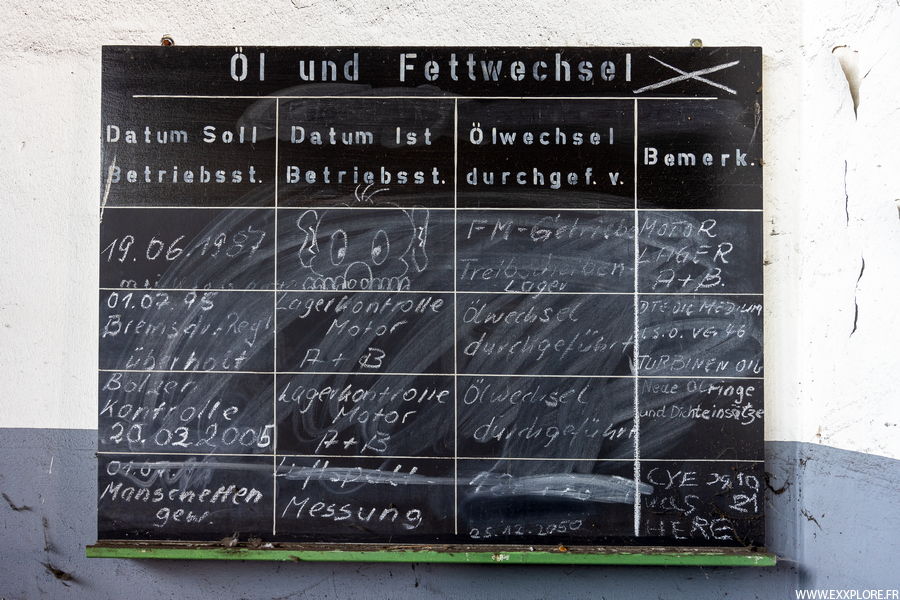 Öl und Fettwechsel
Datum Soll
Betriebsst.
Datum Ist
Betriebsst.
Ölwechsel
durchgef. v.
Bemerk.
19.06.1987
FM-Getriebe
Treibscheiben-
Lager
MOTOR
LAGER
A+B.
01.07.95
Bremsdr. Regl
überholt
Lagerkontrolle
Motor
A+B
Ölwechsel
durchgeführt
DTE OIL MEDIUM
I.S.O. VG. 46
TURBINEN OIL
Bolzen
Kontrolle
20.02.2005
Lagerkontrolle
Motor
A+B
Ölwechsel
durchgeführt
Neue Ölringe
und Dichteinsätze
01.04.
Manschetten
gew.
Luftspalt
Messung
25.12.2050
CYE 29.10
WAS 21
HERE
WWW.EXXPLORE.FR